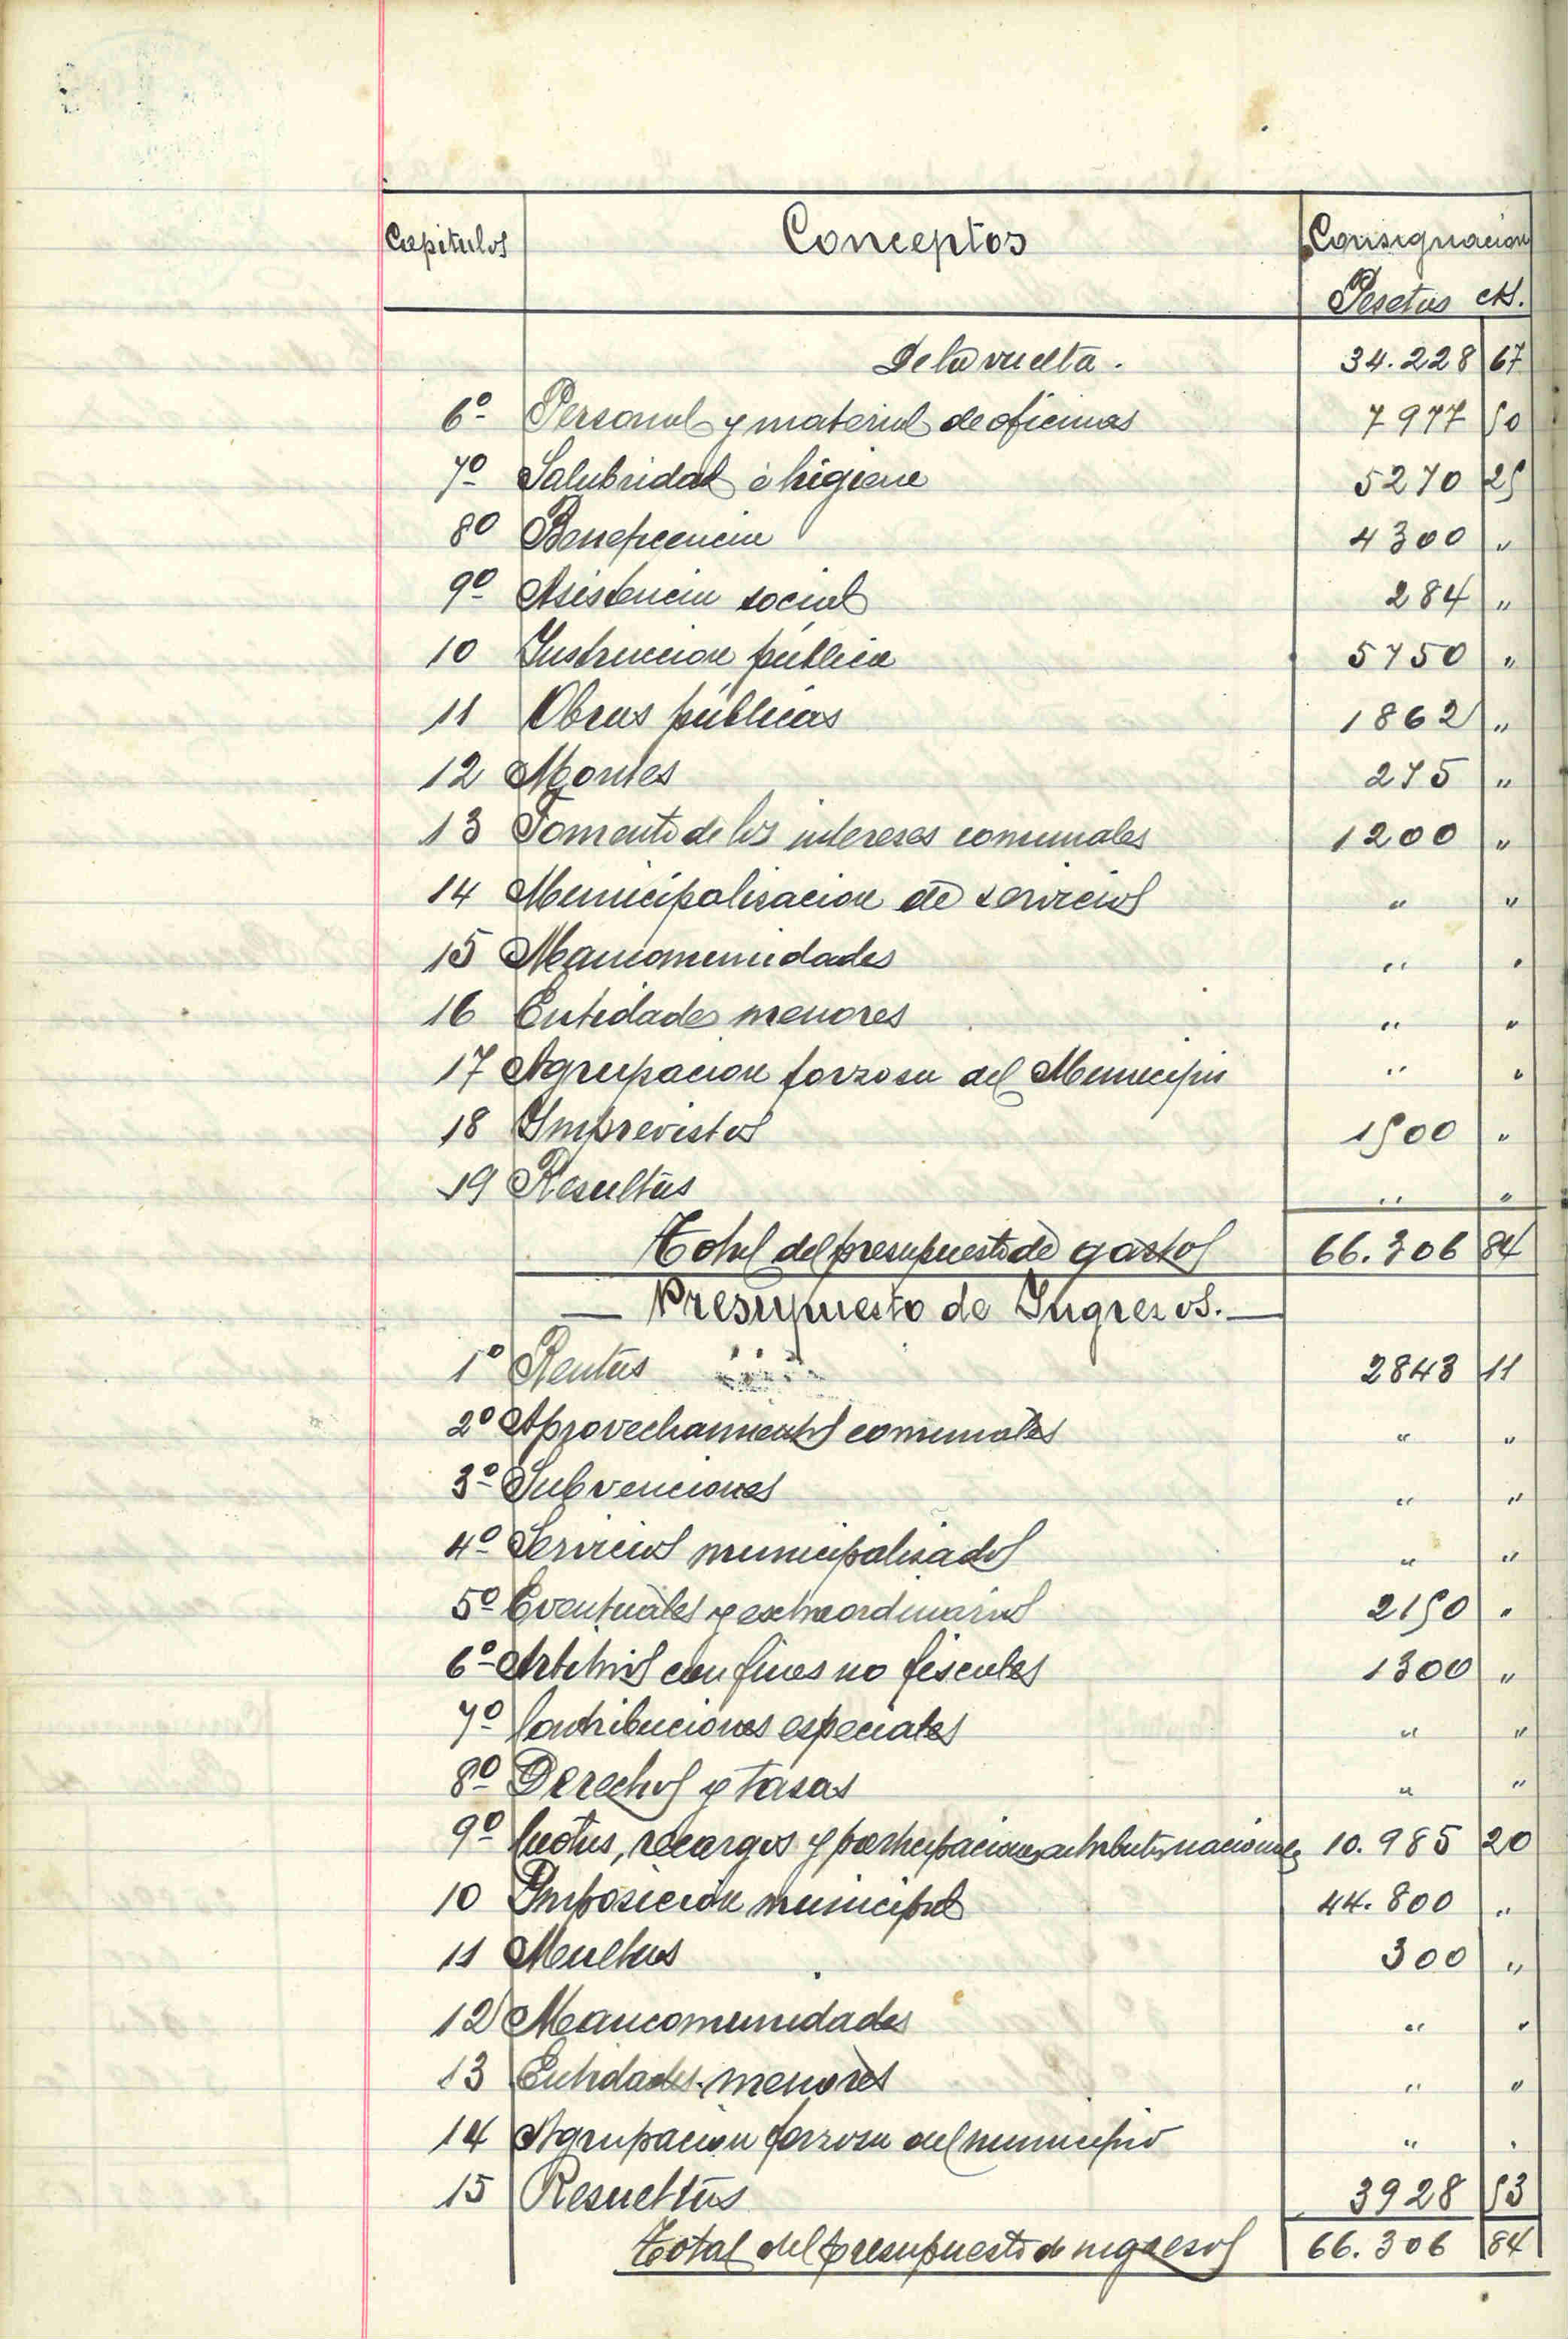 Capítulos Conceptos Consignación
Pesetas cts.
De la vuelta. 34.228 67
6º Personal y material de oficinas 7977 50
7º Salubridad é higiene 5270 25
8º Beneficencia 4300 "
9º Asistencia social 284 "
10 Instruccion pública 5750 "
11 Obras públicas 1862 "
12 Montes 275 "
13 Fomento de los intereses comunales 1200 "
14 Municipalisacion de servicios " "
15 Mancomunidades " "
16 Entidades menores " "
17 Agrupacion forzosa del Municipio " "
18 Imprevistos 1500 "
19 Resultas " "
Total del presupuesto de gastos 66.306 84
— Presupuesto de Ingresos. —
1º Rentas 2843 11
2º Aprovechamientos comunales " "
3º Subvenciones " "
4º Servicios municipalisados " "
5º Eventuales y extraordinarios 2150 "
6º Arbitrios con fines no fiscales 1300 "
7º Contribuciones especiales " "
8º Derechos y tasas " "
9º Cuotas, recargos y participaciones en tributos nacionales 10.985 20
10 Imposición municipal 44.800 "
11 Multas 300 "
12 Mancomunidades " "
13 Entidades menores " "
14 Agrupacion forzosa del municipio " "
15 Resultas 3928 53
Total del presupuesto de ingresos 66.306 84